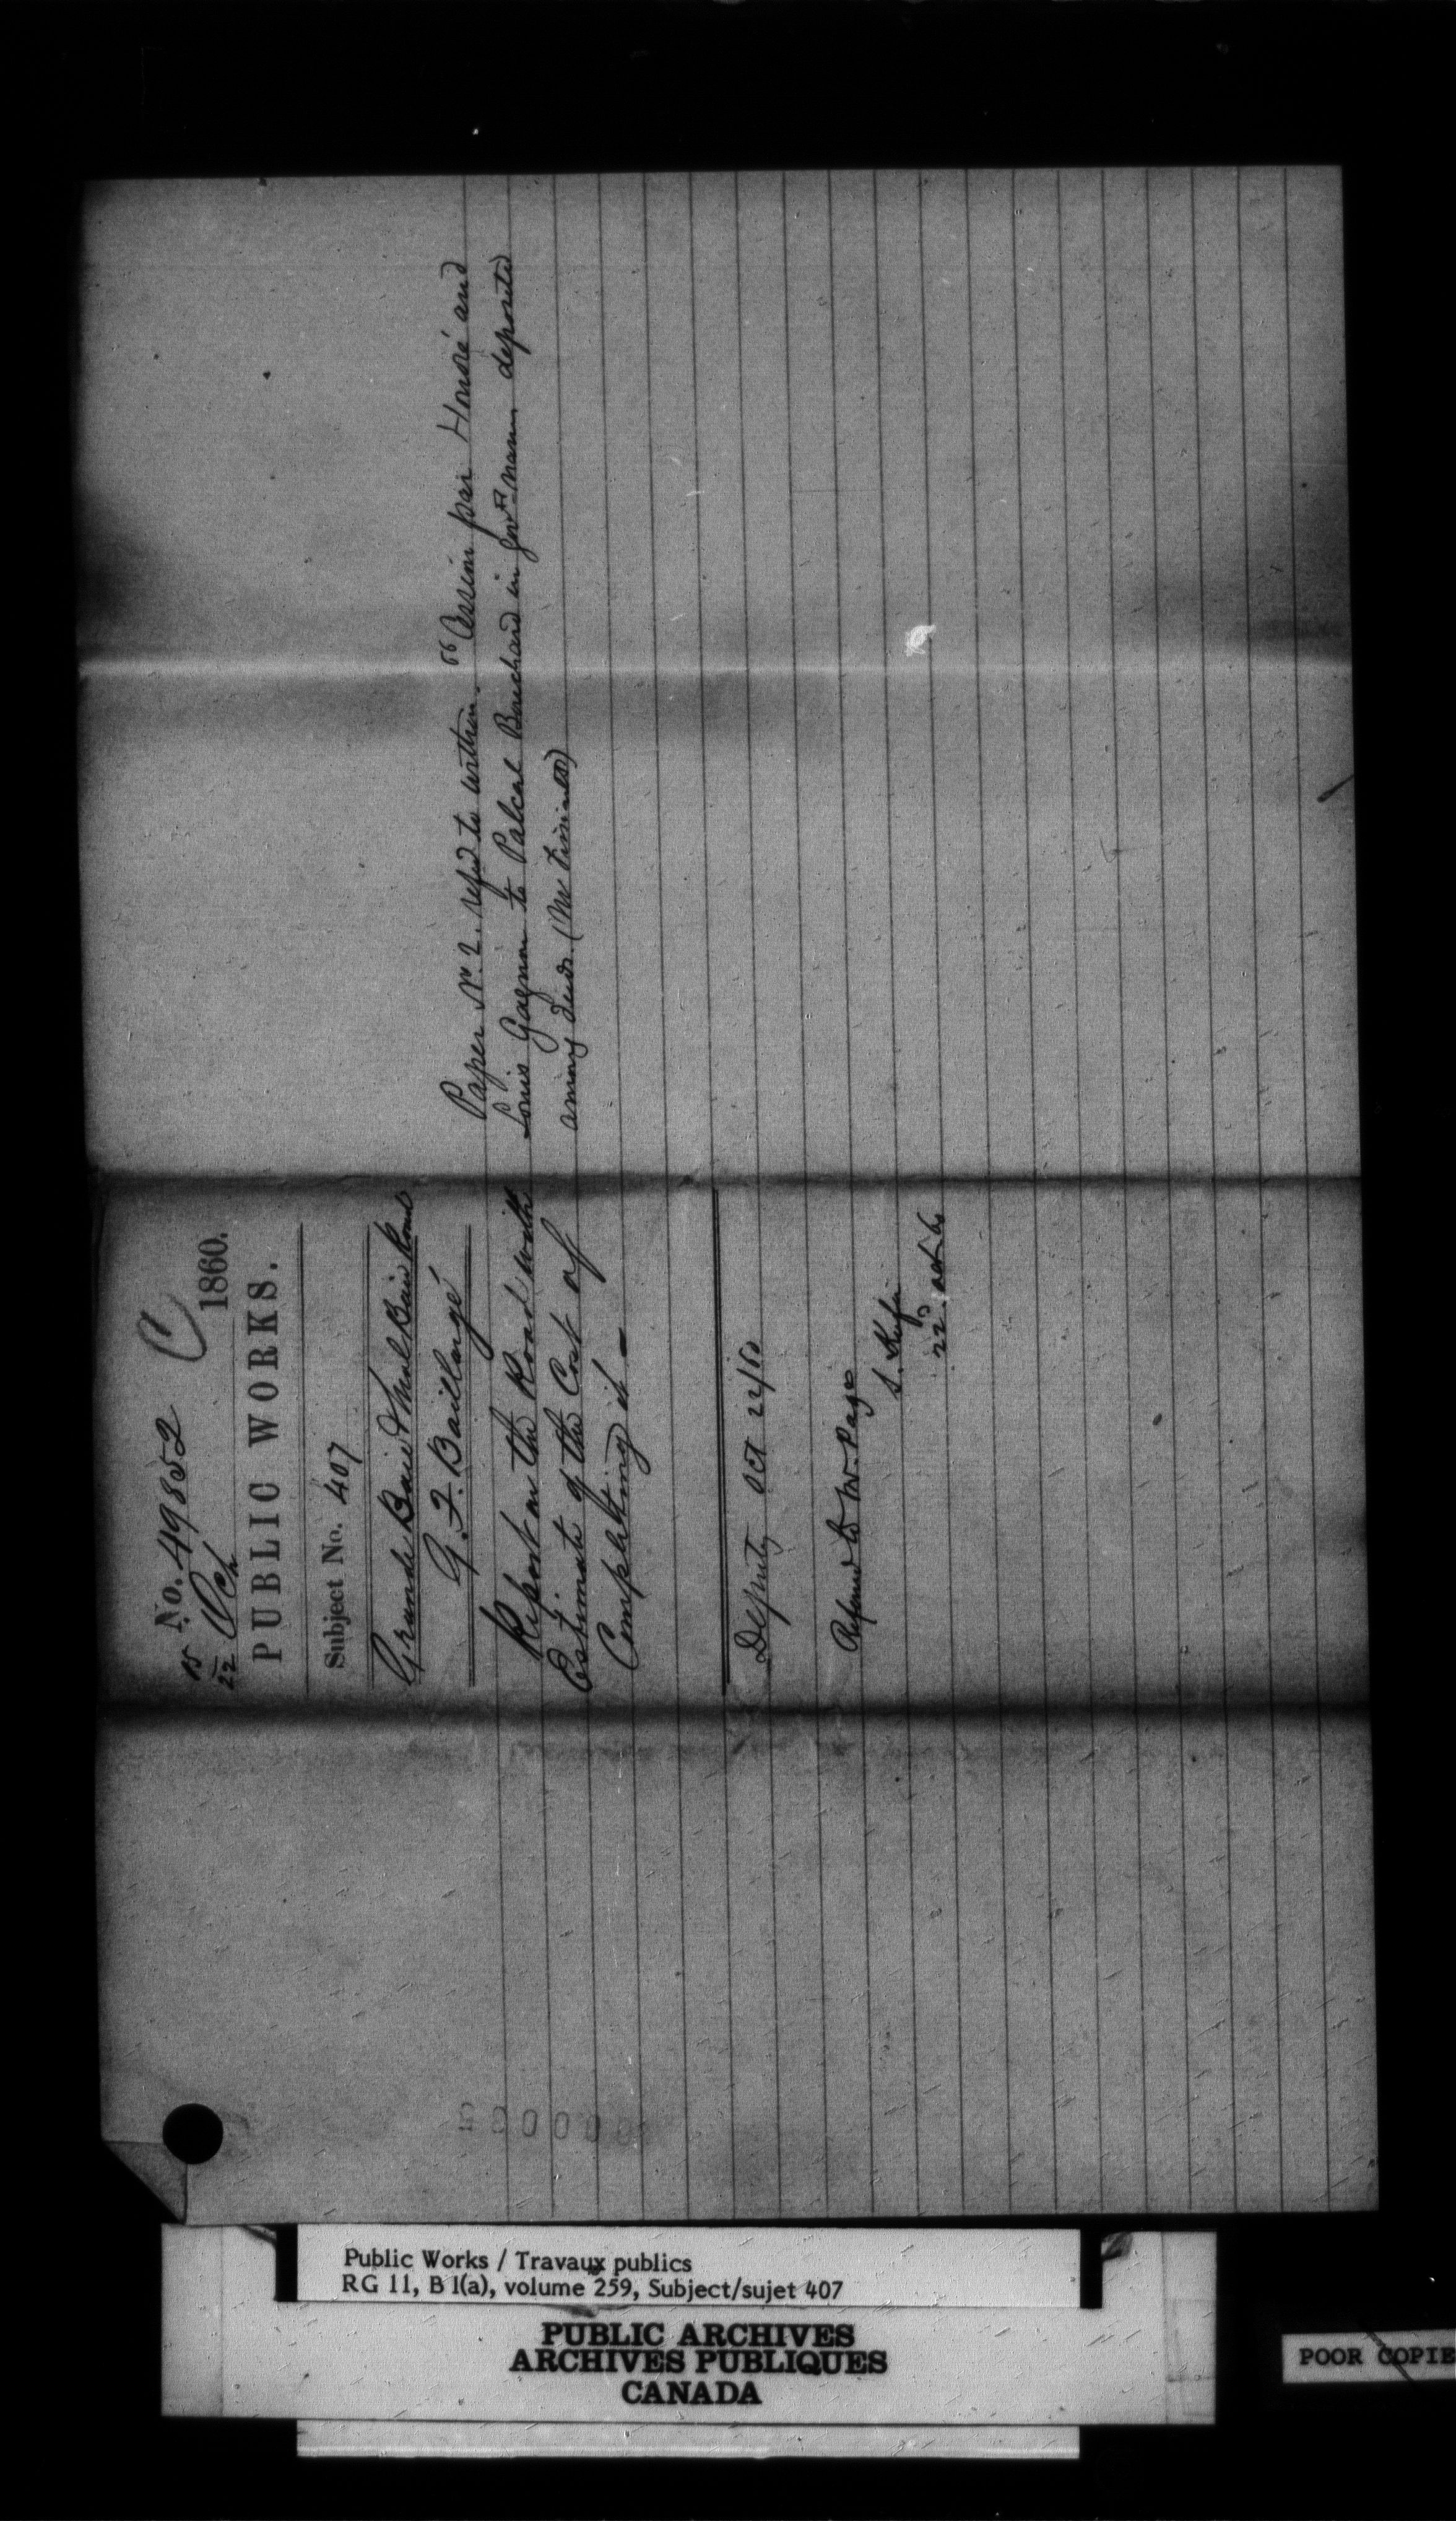 No. 49852 C
15/22 Oct 1860.
PUBLIC WORKS.
Subject No. 407
Grande Baie & Mal Baie Road
G. F. Baillargé
Report on the Road with
Estimate of the Cost of
Completing it –
Deputy Oct 22/60
Referred to Mr. Page
S. Keefer
22d Oct 60
Paper No. 2. refd to within. "Cession par Honoré and
Louis Gagnon to Palcal Bouchard in govt. name deposited
among deeds. (Mr
00000
Public Works / Travaux publics
RG 11, B 1(a), volume 259, Subject/sujet 407
PUBLIC ARCHIVES
ARCHIVES PUBLIQUES
CANADA
POOR COPIE